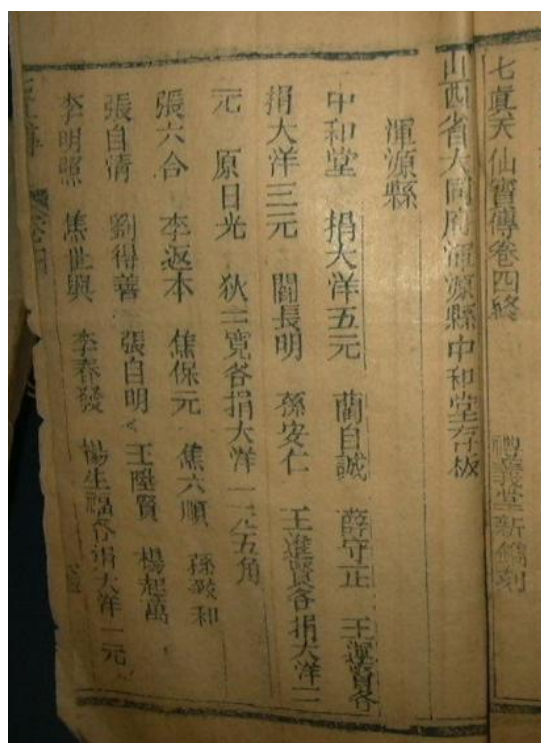 七眞天仙寶傳卷四終　禮義堂新鐫刻
山西省大同府渾源縣中和堂存板
渾源縣
中和堂　捐大洋五元　藺自誠　薛守正　王運賢各
捐大洋三元　閻長明　孫安仁　王進賢各捐大洋二
元　原日光　狄三寬各捐大洋一元五角
張六合　李返本　焦保元　焦六順　孫致和
張自清　劉得善　張自明　王陞賢　楊旭萬
李明照　焦世興　李春發　楊生福各捐大洋一元
卷四